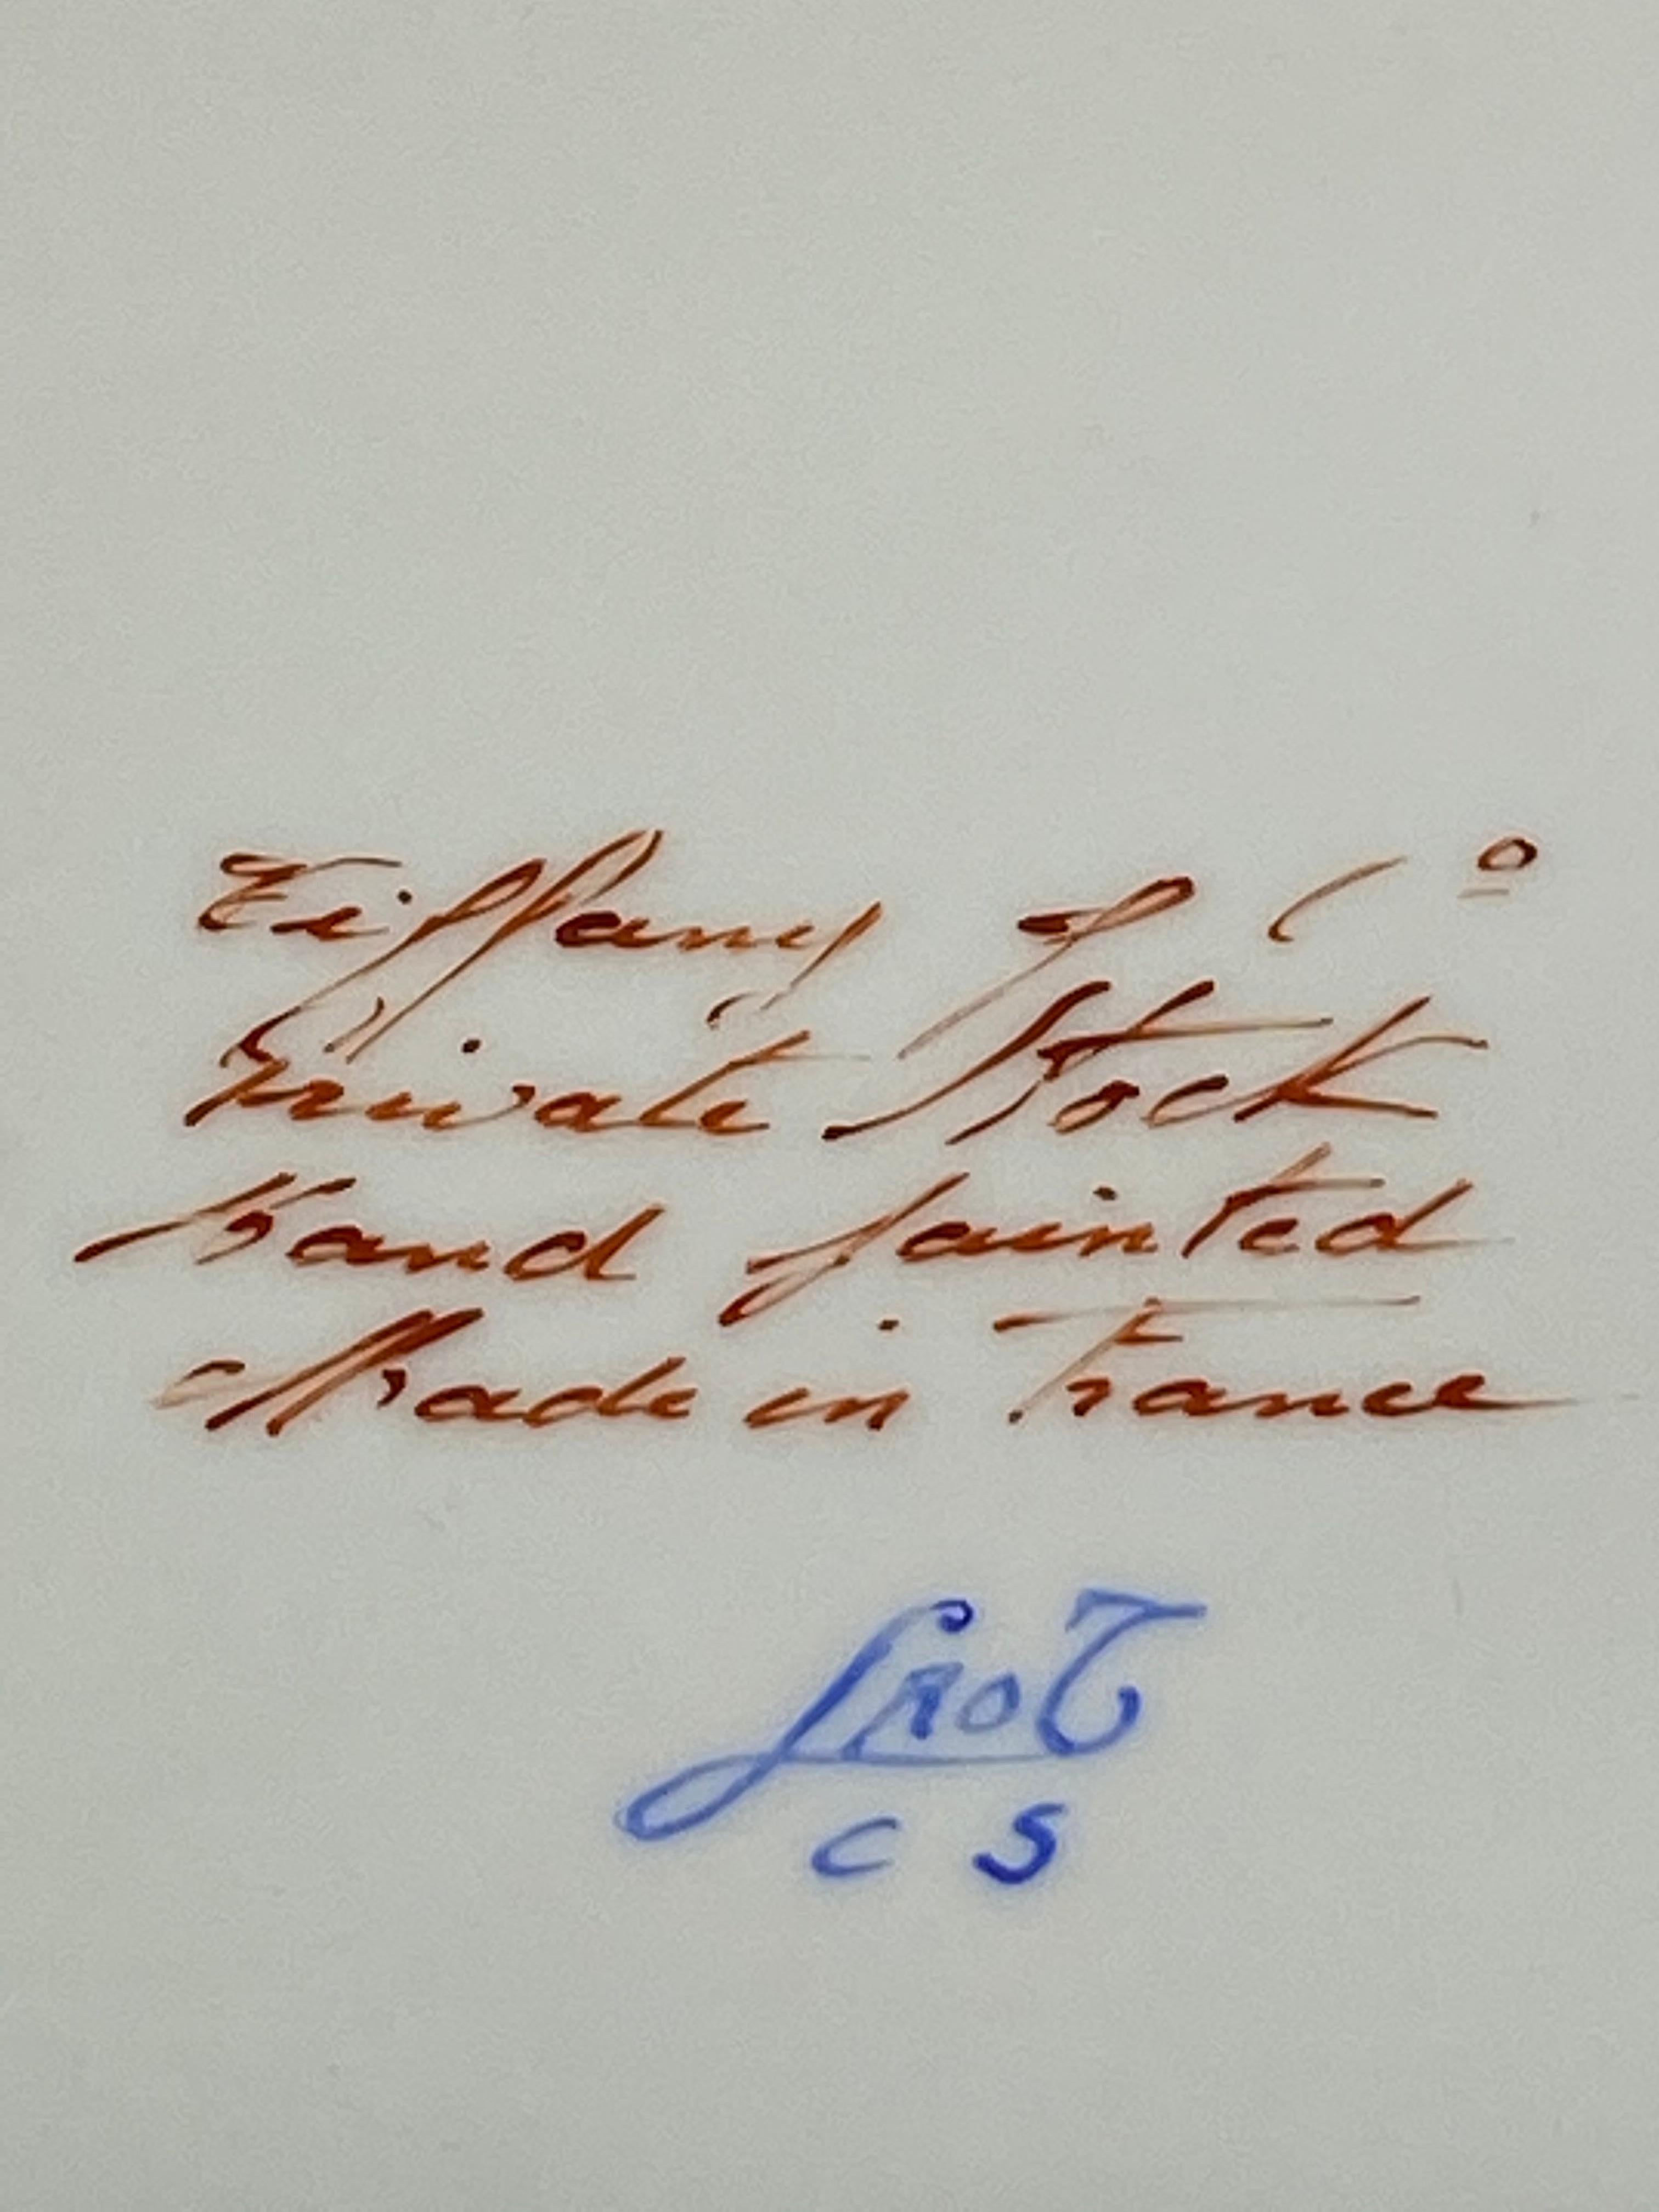 Tiffany & Co
Private Stock
Hand painted
Made in France
C S